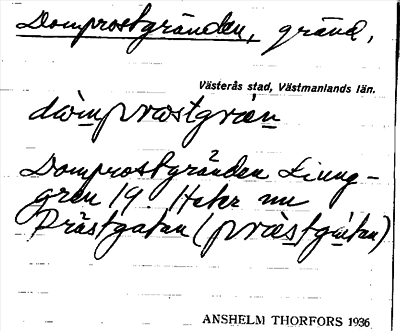 Domprostgränden, gränd,
Västerås stad, Västmanlands län.
dòmprωstgræn
Domprostgränden Ljung-
gren 19. Heter nu
Prästgatan (præstgatan)
ANSHELM THORFORS 1936